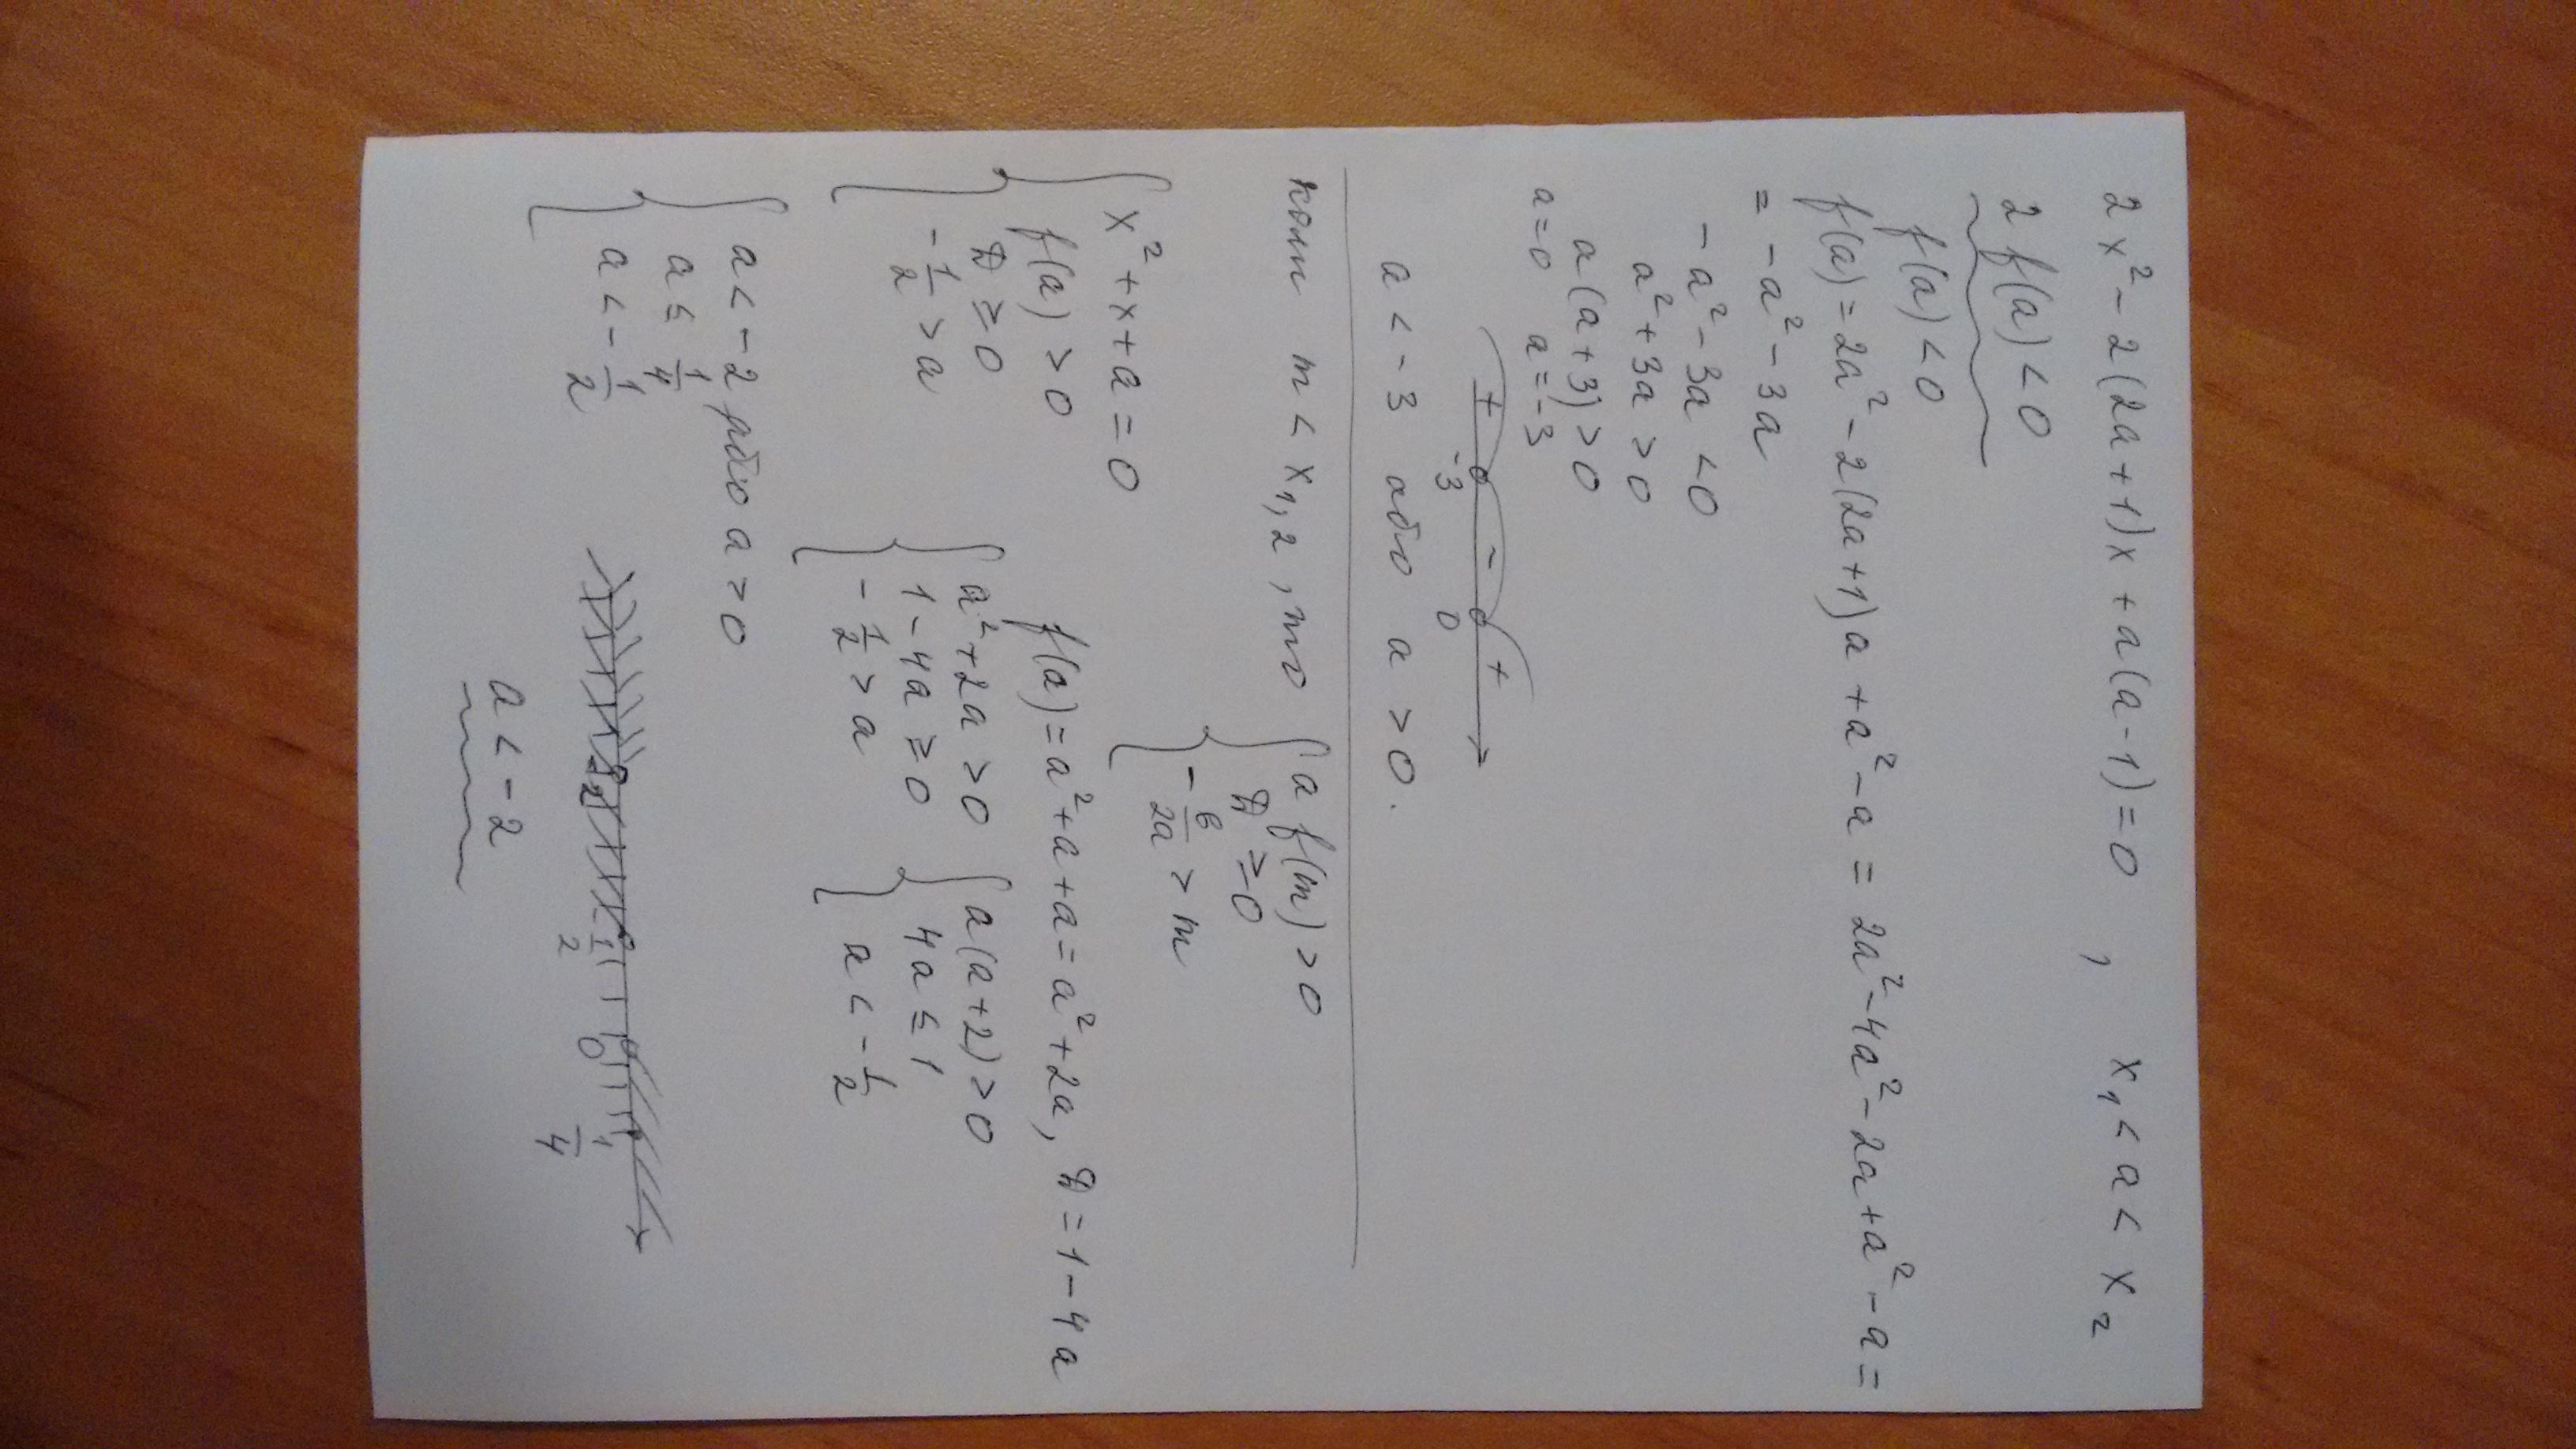 2x² - 2(2a+1)x + a(a-1) = 0 , x₁ < a < x₂
2 f(a) < 0
f(a) < 0
f(a) = 2a² - 2(2a+1)a + a² - a = 2a² - 4a² - 2a + a² - a =
= - a² - 3a
- a² - 3a < 0
a² + 3a > 0
a(a+3) > 0
a = 0 a = -3
+ - +
-3 0
a < -3 або a > 0.
коли m < x₁,₂ , то { a f(m) > 0
D ≥ 0
- b/2a > m
x² + x + a = 0
{ f(a) > 0 f(a) = a² + a + a = a² + 2a, D = 1 - 4a
D ≥ 0
- 1/2 > a
{ a² + 2a > 0 { a(a+2) > 0
1 - 4a ≥ 0 4a ≤ 1
- 1/2 > a a < - 1/2
{ a < -2 або a > 0
a ≤ 1/4
a < - 1/2
-2 -1/2 0 1/4
a < -2